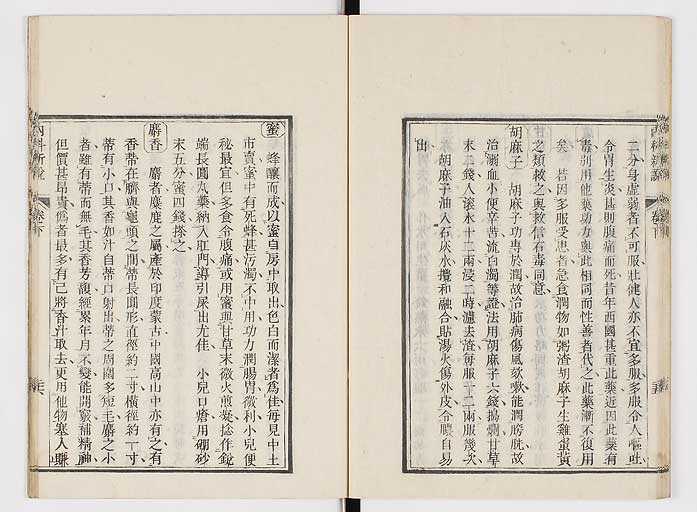 二分身虛弱者不可服壯健人亦不宜多服多服令人嘔吐
令胃生炎甚則腹痛而死昔年西國甚重此藥近因此藥有
毒別用他藥功力與此相同而性善者代之此藥漸不復用
矣 若因多服受患者急食潤物如粥渣胡麻子生雞蛋黃
甘之類救之與救信石毒同意
胡麻子 胡麻子功專於潤故治肺病傷風欬嗽能潤膀胱故
治溺血小便辛苦流白濁等證法用胡麻子六錢搗爛甘草
末二錢入滾水十二兩浸二時濾去渣每服一二兩服幾次
胡麻子油入石灰水攪和融合貼湯火傷外皮令體自易
出
內科新說 卷下 三十五
蜜 蜂釀而成以蜜自房中取出色白而潔者為佳每見中土
市賣蜜中有死蜂甚污濁不中用功力潤腸胃微利小兒便
秘最宜但多食令腹痛或用蜜與甘草末微火煎凝捻作銳
端長圓丸藥納入肛門導引屎出尤佳 小兒口瘡用硼砂
末五分蜜四錢搽之
麝香 麝者麋鹿之屬產於印度蒙古中國高山中亦有之有
香帶在臍與龜頭之間蒂長圓形直徑約二寸橫徑約一寸
蒂有小口其香如汁自蒂口射出蒂之周圍多短毛麝之小
者雖有蒂而無毛其香芳馥經累年月不變能開竅補精神
但價甚昂貴偽者最多有已將香汁取去更用他物塞入賺
內科新說 卷下 三十六